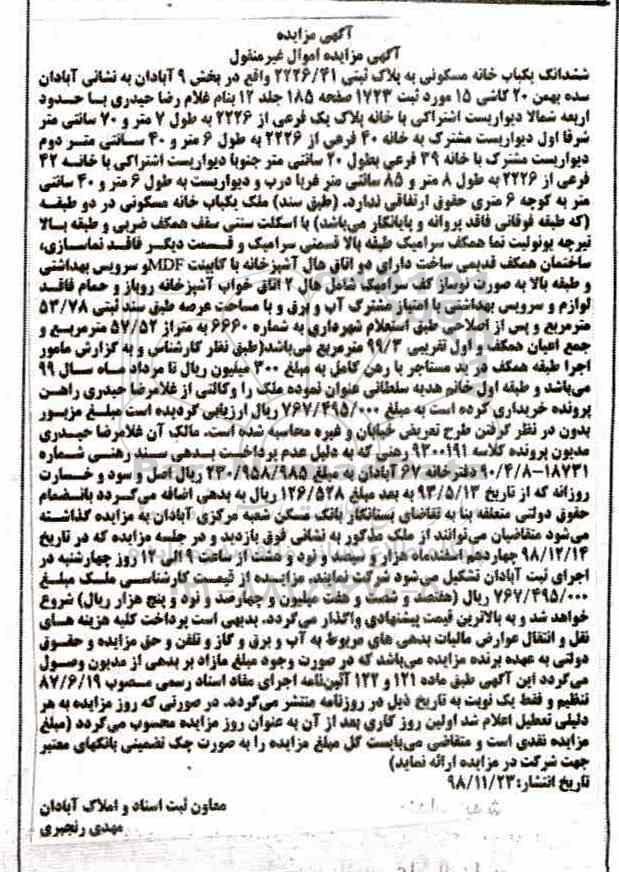 آگهی مزایده
آگهی مزایده اموال غیرمنقول
ششدانگ یکباب خانه مسکونی به پلاک ثبتی ۲۲۲۶/۴۱ واقع در بخش ۹ آبادان به نشانی آبادان
سده بهمن ۲۰ کاشی ۱۵ مورد ثبت ۱۷۲۳ صفحه ۱۸۵ جلد ۱۲ بنام غلام رضا حیدری با حدود
اربعه شمالا دیواریست اشتراکی با خانه پلاک یک فرعی از ۲۲۲۶ به طول ۷ متر و ۷۰ سانتی متر
شرقا اول دیواریست مشترک به خانه ۴۰ فرعی از ۲۲۲۶ به طول ۶ متر و ۴۰ سانتی متر دوم
دیواریست مشترک با خانه ۳۹ فرعی بطول ۲۰ سانتی متر جنوبا دیواریست اشتراکی با خانه ۴۲
فرعی از ۲۲۲۶ به طول ۸ متر و ۸۵ سانتی متر غربا درب و دیواریست به طول ۶ متر و ۴۰ سانتی
متر به کوچه ۶ متری حقوق ارتفاقی ندارد. (طبق سند) ملک یکباب خانه مسکونی در دو طبقه
(که طبقه فوقانی فاقد پروانه و پایانکار می‌باشد) با اسکلت سنتی سقف همکف ضربی و طبقه بالا
تیرچه یونولیت نما همکف سرامیک طبقه بالا قسمتی سرامیک و قسمت دیگر فاقد نماسازی،
ساختمان همکف قدیمی ساخت دارای دو اتاق هال آشپزخانه با کابینت MDF و سرویس بهداشتی
و طبقه بالا به صورت نوساز کف سرامیک شامل هال ۲ اتاق خواب آشپزخانه روباز و حمام فاقد
لوازم و سرویس بهداشتی با امتیاز مشترک آب و برق و با مساحت عرصه طبق سند ثبتی ۵۳/۷۸
مترمربع و پس از اصلاحی طبق استعلام شهرداری به شماره ۶۶۶۰ به متراژ ۵۷/۵۲ مترمربع و
جمع اعیان همکف و اول تقریبی ۹۹/۳ مترمربع می‌باشد(طبق نظر کارشناس و به گزارش مامور
اجرا طبقه همکف در ید مستاجر با رهن کامل به مبلغ ۳۰۰ میلیون ریال تا مرداد ماه سال ۹۹
می‌باشد و طبقه اول خانم هدیه سلطانی عنوان نموده ملک را وکالتی از غلامرضا حیدری راهن
پرونده خریداری کرده است به مبلغ ۷۶۷/۴۹۵/۰۰۰ ریال ارزیابی گردیده است مبلغ مزبور
بدون در نظر گرفتن طرح تعریض خیابان و غیره محاسبه شده است. مالک آن غلامرضا حیدری
مدیون پرونده کلاسه ۹۳۰۰۱۹۱ رهنی که به دلیل عدم پرداخت بدهی سند رهنی شماره
۱۸۷۳۱-۹۰/۴/۸ دفترخانه ۶۷ آبادان به مبلغ ۲۳۰/۹۵۸/۹۸۵ ریال اصل و سود و خسارت
روزانه که از تاریخ ۹۳/۵/۱۳ به بعد مبلغ ۱۲۶/۵۲۸ ریال به بدهی اضافه می‌گردد بانضمام
حقوق دولتی متعلقه بنا به تقاضای بستانکار بانک مسکن شعبه مرکزی آبادان به مزایده گذاشته
می‌شود متقاضیان می‌توانند از ملک مذکور به نشانی فوق بازدید و در جلسه مزایده که در تاریخ
۹۸/۱۲/۱۴ چهاردهم اسفندماه هزار و سیصد و نود و هشت از ساعت ۹ الی ۱۲ روز چهارشنبه در
اجرای ثبت آبادان تشکیل می‌شود شرکت نمایند. مزایده از قیمت کارشناسی ملک مبلغ
۷۶۷/۴۹۵/۰۰۰ ریال (هفتصد و شصت و هفت میلیون و چهارصد و نود و پنج هزار ریال) شروع
خواهد شد و به بالاترین قیمت پیشنهادی واگذار می‌گردد. بدیهی است پرداخت کلیه هزینه های
نقل و انتقال عوارض مالیات بدهی های مربوط به آب و برق و گاز و تلفن و حق مزایده و حقوق
دولتی به عهده برنده مزایده می‌باشد که در صورت وجود مبلغ مازاد بر بدهی از مدیون وصول
می‌گردد این آگهی طبق ماده ۱۲۱ و ۱۲۲ آئین‌نامه اجرای مفاد اسناد رسمی مصوب ۸۷/۶/۱۹
تنظیم و فقط یک نوبت به تاریخ ذیل در روزنامه منتشر می‌گردد. در صورتی که روز مزایده به هر
دلیلی تعطیل اعلام شد اولین روز کاری بعد از آن به عنوان روز مزایده محسوب می‌گردد (مبلغ
مزایده نقدی است و متقاضی می‌بایست کل مبلغ مزایده را به صورت چک تضمینی بانکهای معتبر
جهت شرکت در مزایده ارائه نماید)
تاریخ انتشار: ۹۸/۱۱/۲۳
معاون ثبت اسناد و املاک آبادان
مهدی رنجبری